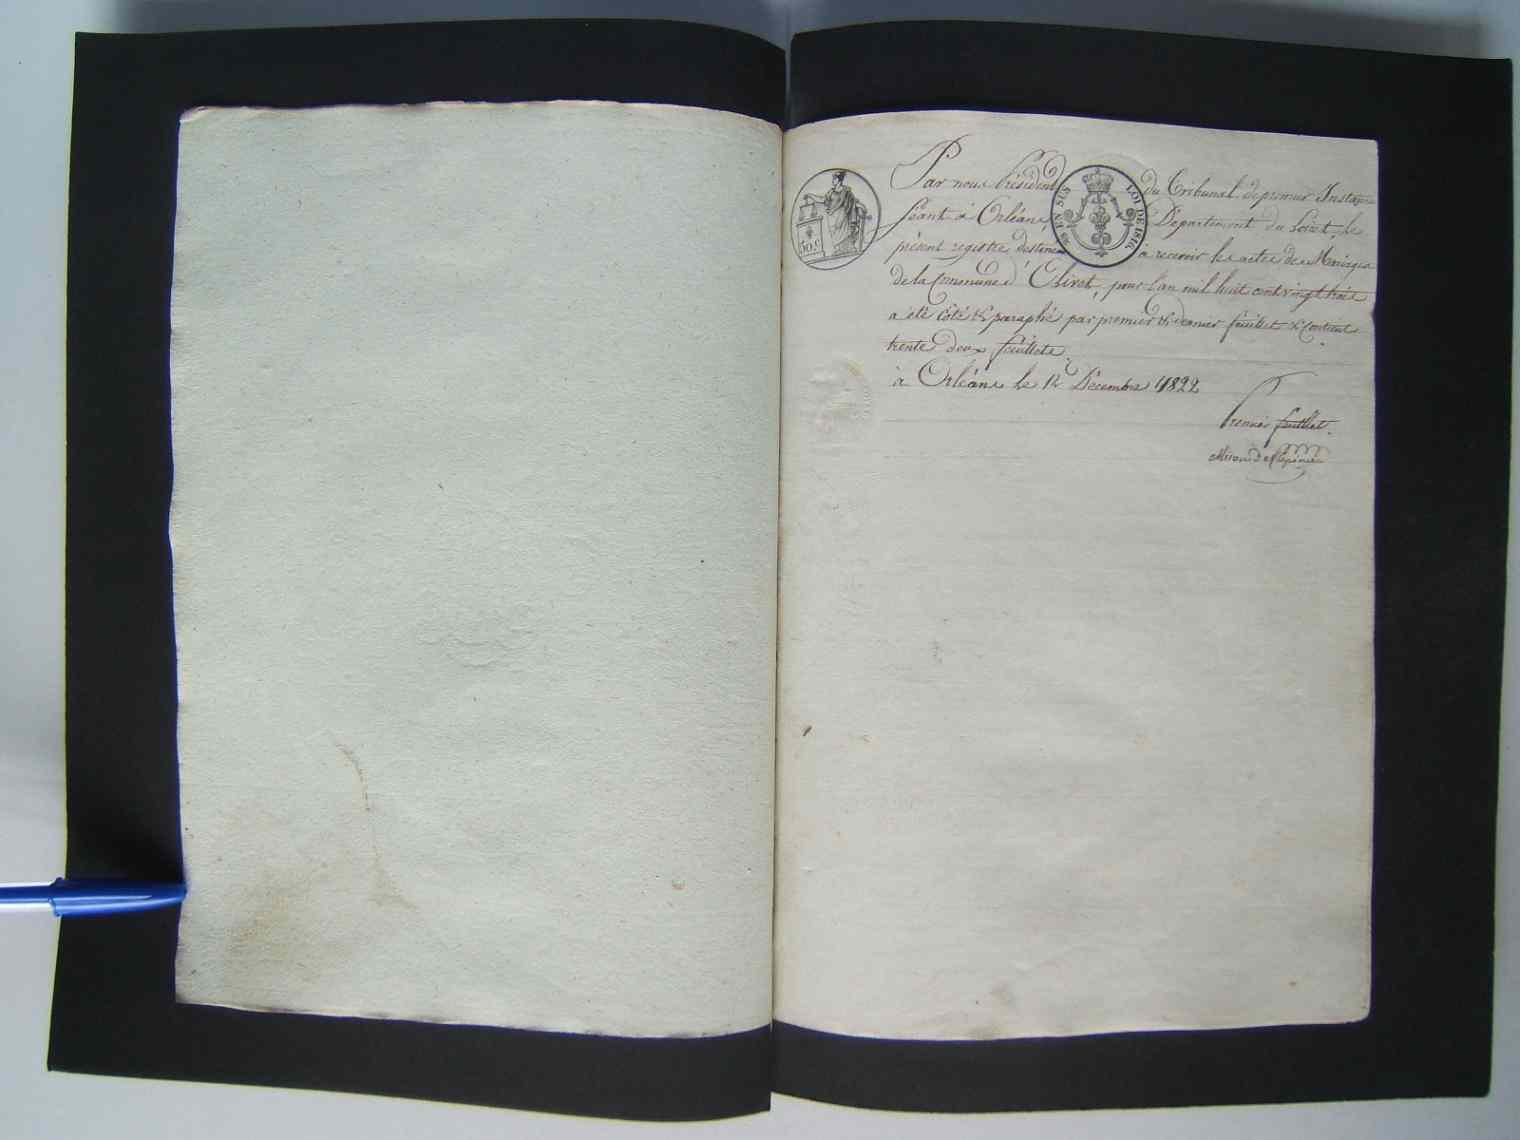 Par nous Président du Tribunal de premier Instance
séant à Orléans, Département du Loiret, le
présent registre destiné à recevoir les actes de Mariages
de la Commune d'Olivet, pour l'an mil huit cent vingt trois
a été côté & paraphé par premier & dernier feuillet & contient
trente deux feuillets.
à Orléans le 12 Décembre 1822
Premier feuillet.
Miron de l'Espinai
50.c
EN SUS
LOI DE 1816.